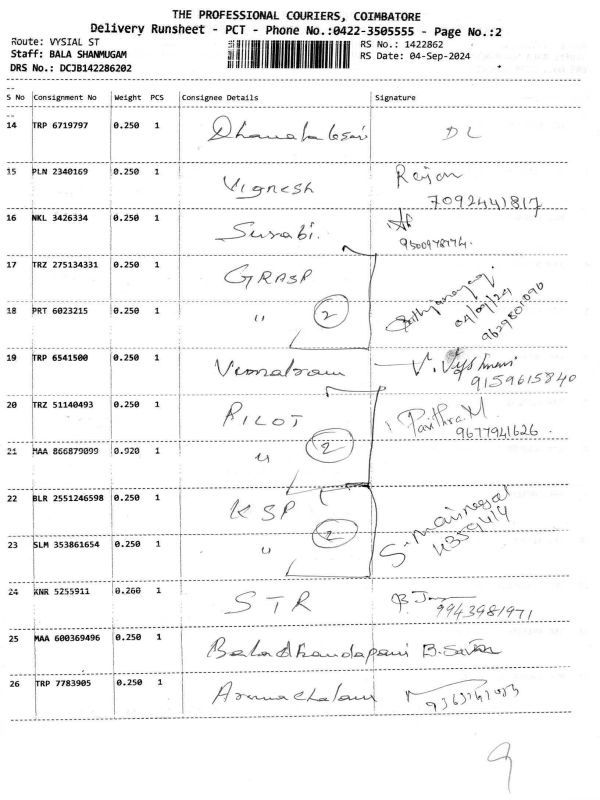 THE PROFESSIONAL COURIERS, COIMBATORE
Delivery Runsheet - PCT - Phone No.:0422-3505555 - Page No.:2
Route: VYSIAL ST RS No.: 1422862
Staff: BALA SHANMUGAM RS Date: 04-Sep-2024
DRS No.: DCJB142286202
S No Consignment No Weight PCS Consignee Details Signature
14 TRP 6719797 0.250 1 DL
15 PLN 2340169 0.250 1 Vignesh Rajan
7092441817
16 NKL 3426334 0.250 1 Surabi.
17 TRZ 275134331 0.250 1 GRASP
18 PRT 6023215 0.250 1 " 2 04/09/24
9629801090
19 TRP 6541500 0.250 1
9159615840
20 TRZ 51140493 0.250 1 PILOT Pavithra M
9677941626
21 MAA 866879099 0.920 1 " 2
22 BLR 2551246598 0.250 1 KSP
23 SLM 353861654 0.250 1 " 2
24 KNR 5255911 0.260 1 STR
9943981971
25 MAA 600369496 0.250 1 Baladhandapani
26 TRP 7783905 0.250 1 Arunachalam